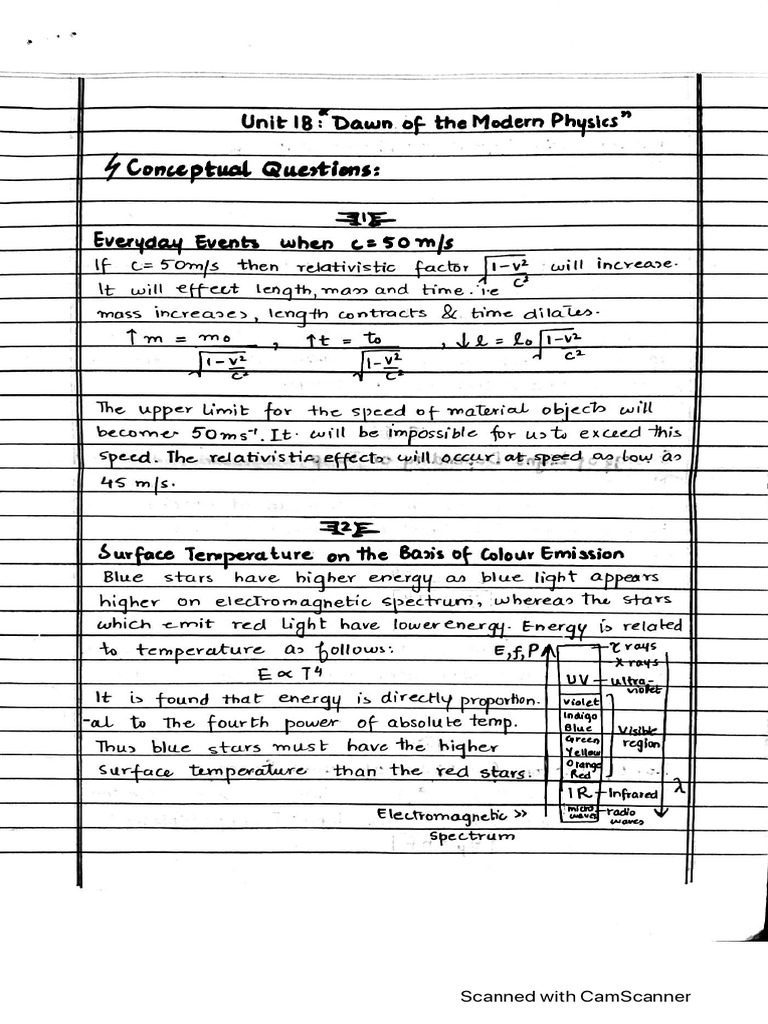 Unit 18: "Dawn of the Modern Physics"
Conceptual Questions:
1
Everyday Events when c=50m/s
If c=50m/s then relativistic factor √1-v²/c² will increase.
It will effect length, mass and time. i.e
mass increases, length contracts & time dilates.
↑m = m₀/√1-v²/c² , ↑t = t₀/√1-v²/c² , ↓l = l₀√1-v²/c²
The upper limit for the speed of material objects will
become 50ms⁻¹. It will be impossible for us to exceed this
speed. The relativistic effects will occur at speed as low as
45 m/s.
2
Surface Temperature on the Basis of Colour Emission
Blue stars have higher energy as blue light appears
higher on electromagnetic spectrum, whereas the stars
which emit red light have lower energy. Energy is related
to temperature as follows:
E ∝ T⁴
It is found that energy is directly proportion.
-al to the fourth power of absolute temp.
Thus blue stars must have the higher
surface temperature than the red stars.
Electromagnetic >>
spectrum
E, f, P
τ rays
x rays
UV - ultra-
violet
violet
Indigo
Blue
Green
Yellow
Orange
Red
Visible
region
IR - Infrared
λ
micro
waves
radio
waves
Scanned with CamScanner